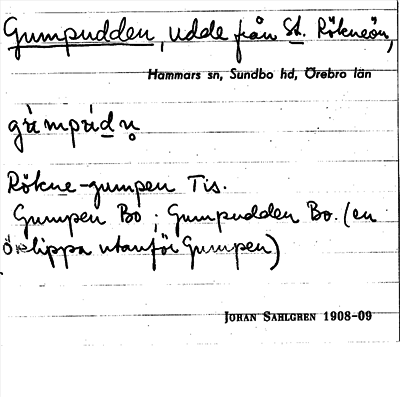 Gumpudden, udde från St. Rökneön,
Hammars sn, Sundbo hd, Örebro län
Rökne-gumpen Tis.
Gumpen Bo; Gumpudden Bo. (en
klippa utanför Gumpen)
JOHAN SAHLGREN 1908-09